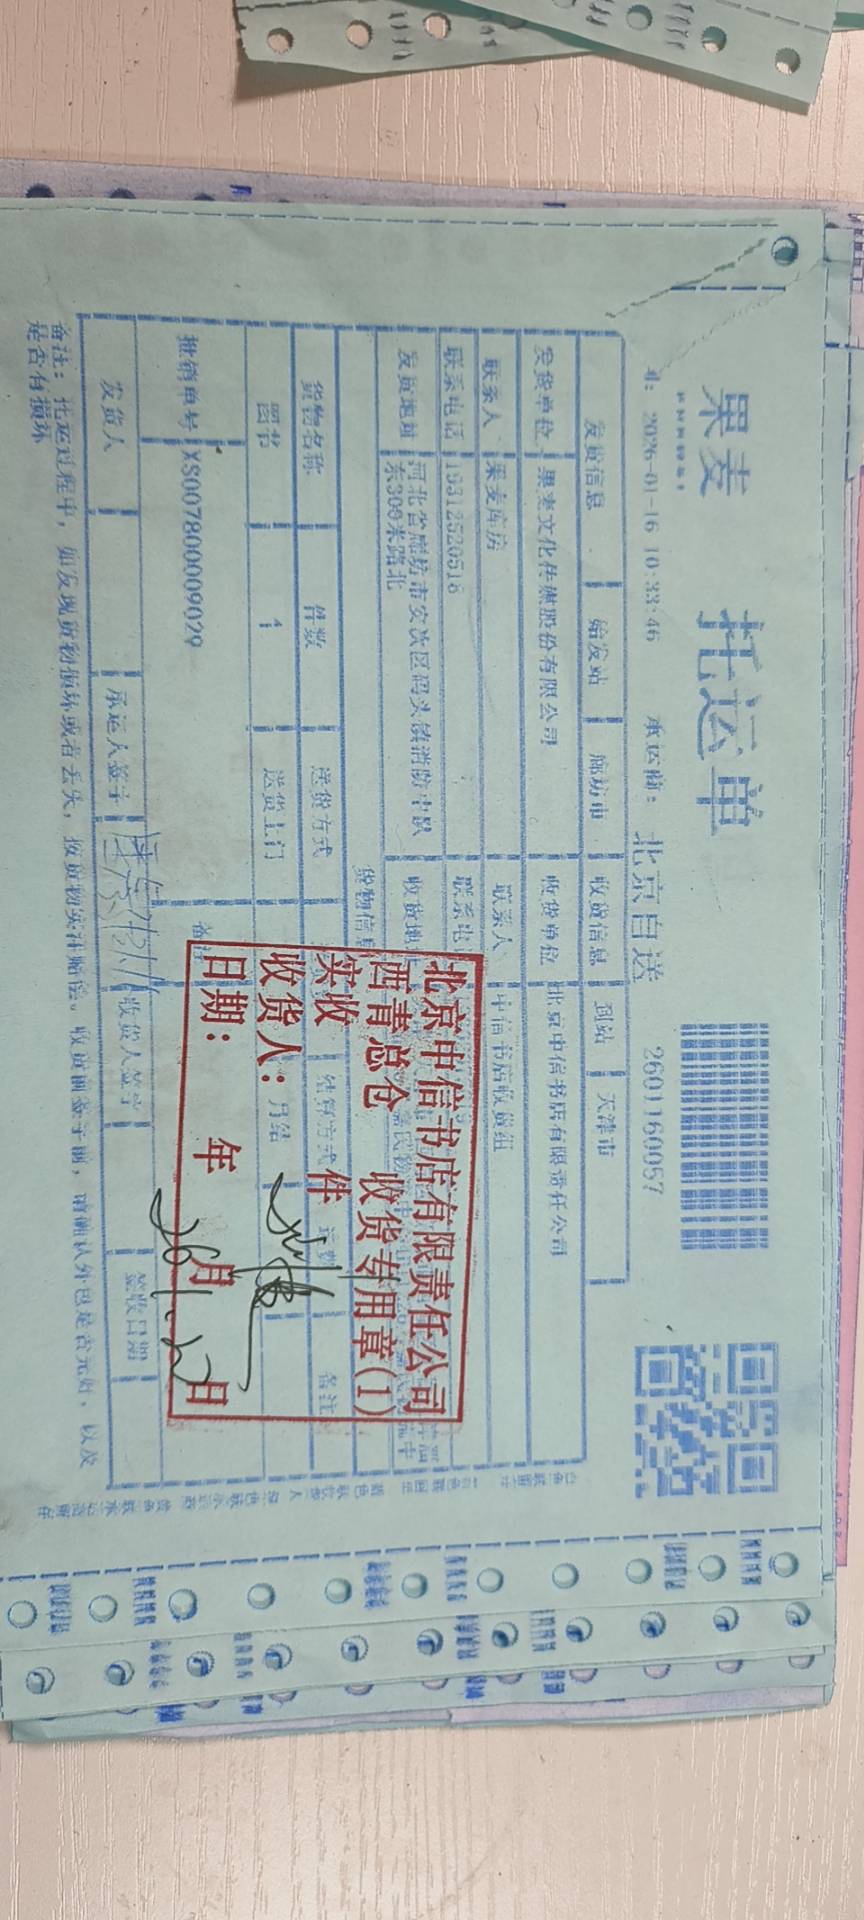 果麦
托运单
2026-01-16 10:33:46 承运商: 北京自送 2601160057
发货信息 始发站 廊坊市 收货信息 到站 天津市
发货单位 果麦文化传媒股份有限公司 收货单位 北京中信书店有限责任公司
联系人 果麦库房 联系人 中信书店收货组
联系电话 19312520516 联系电
发货地址 河北省廊坊市安次区码头镇消防中队 收货地
东300米路北
货物信息
货物名称 件数 送货方式 结算方式 运费 备注
图书 4 送货上门 月结
批销单号 XS00780009029 备注
发货人 承运人签字 收货人签字 签收日期
备注: 托运过程中, 如发现货物损坏或者丢失, 按货物实洋赔偿。收货前签字前, 请确认外包是否完好, 以及
是否有损坏
北京中信书店有限责任公司
西青总仓 收货专用章(1)
实收 件
收货人:
日期: 年 月 日